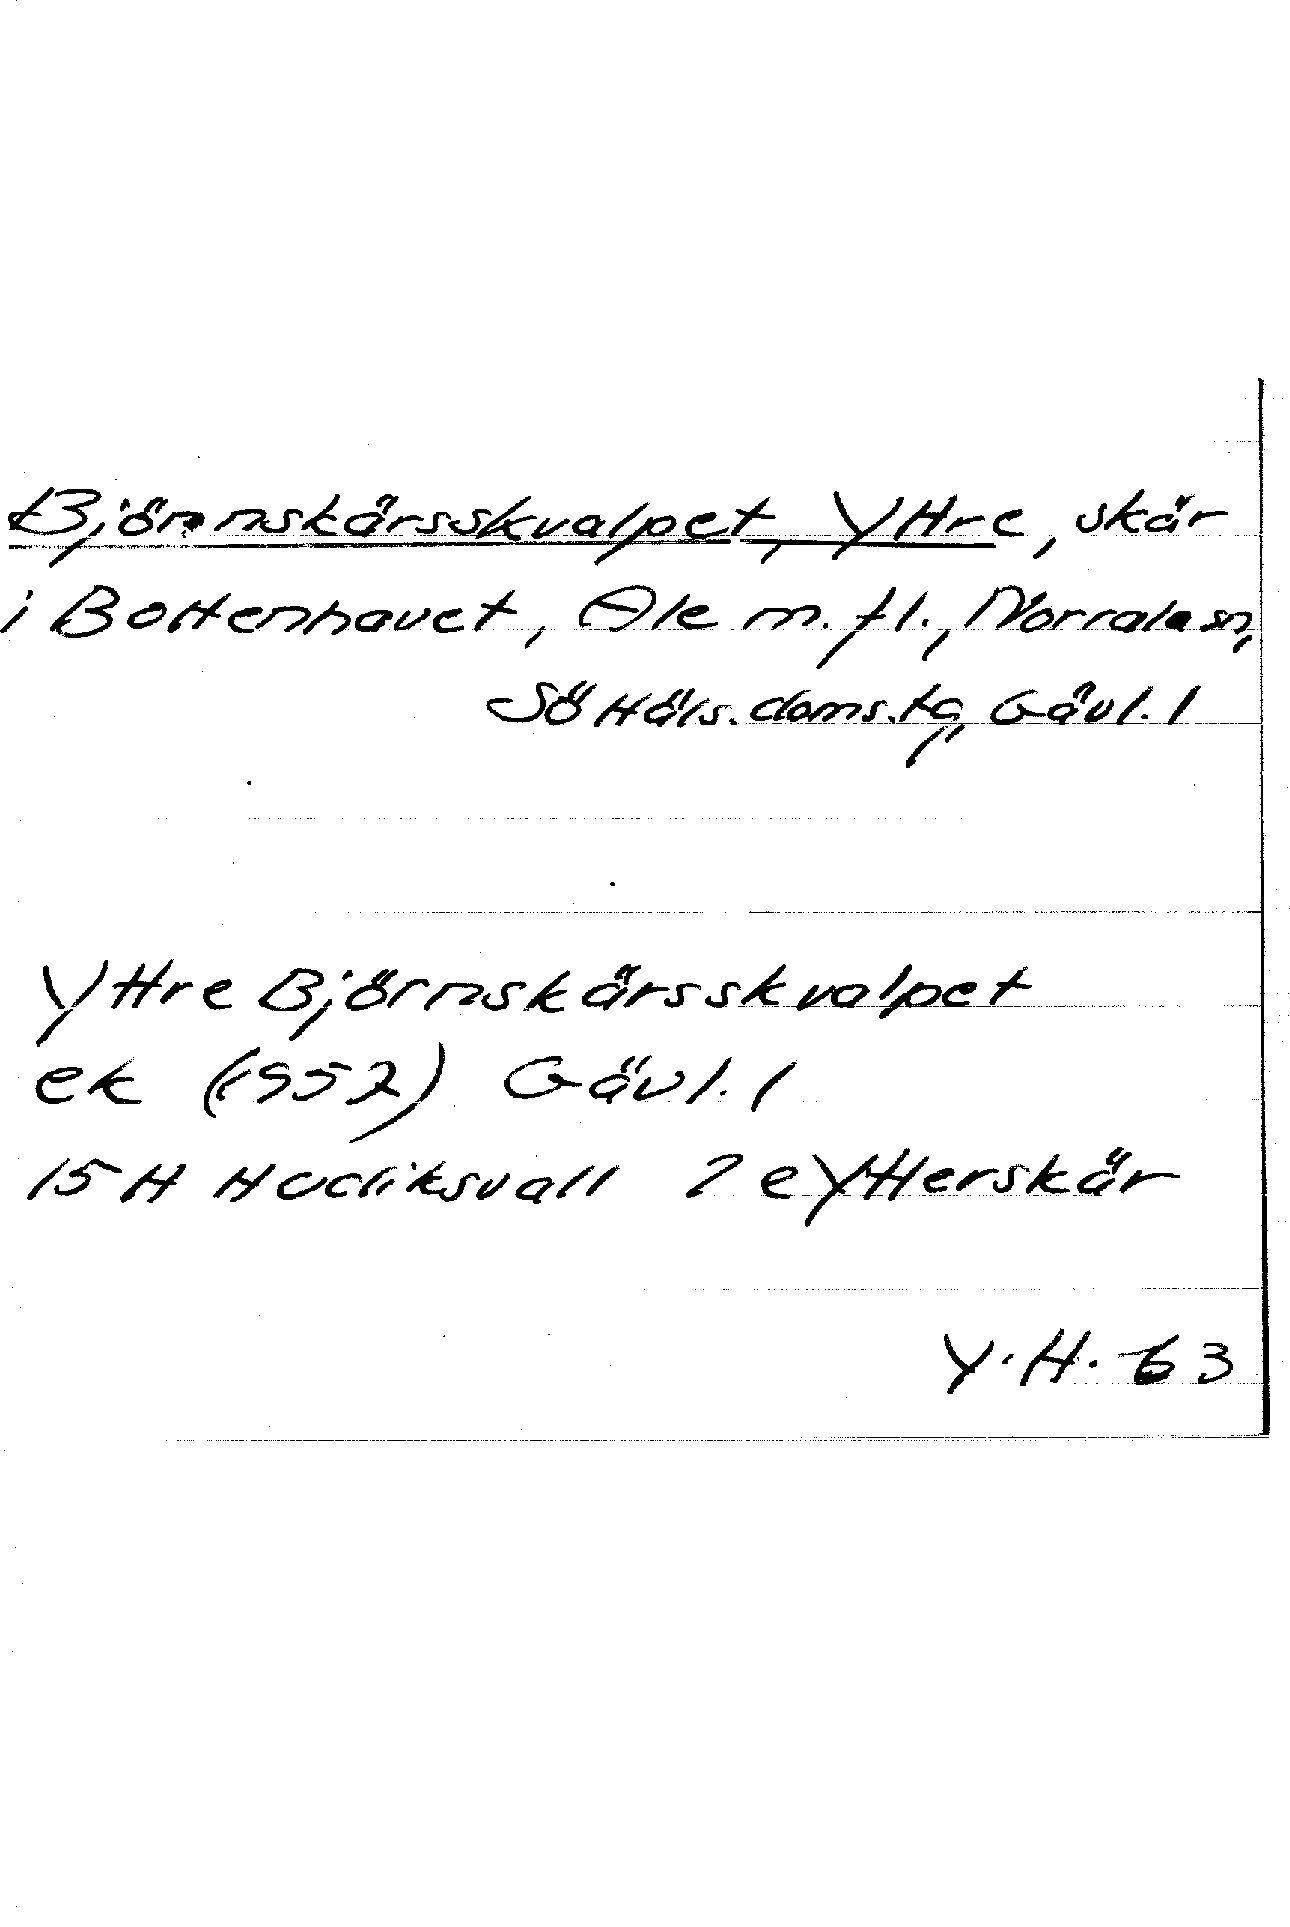 Björnnskärsskvalpet, Yttre, skär
i Bottenhavet, Ale m. fl., Norrala sn,
Sö Häls. doms.tg, Gävl. l
Yttre Björnskärsskvalpet
ek (1952) Gävl. l
15 H Hudiksvall 2 e Ytterskär
Y. H. 63